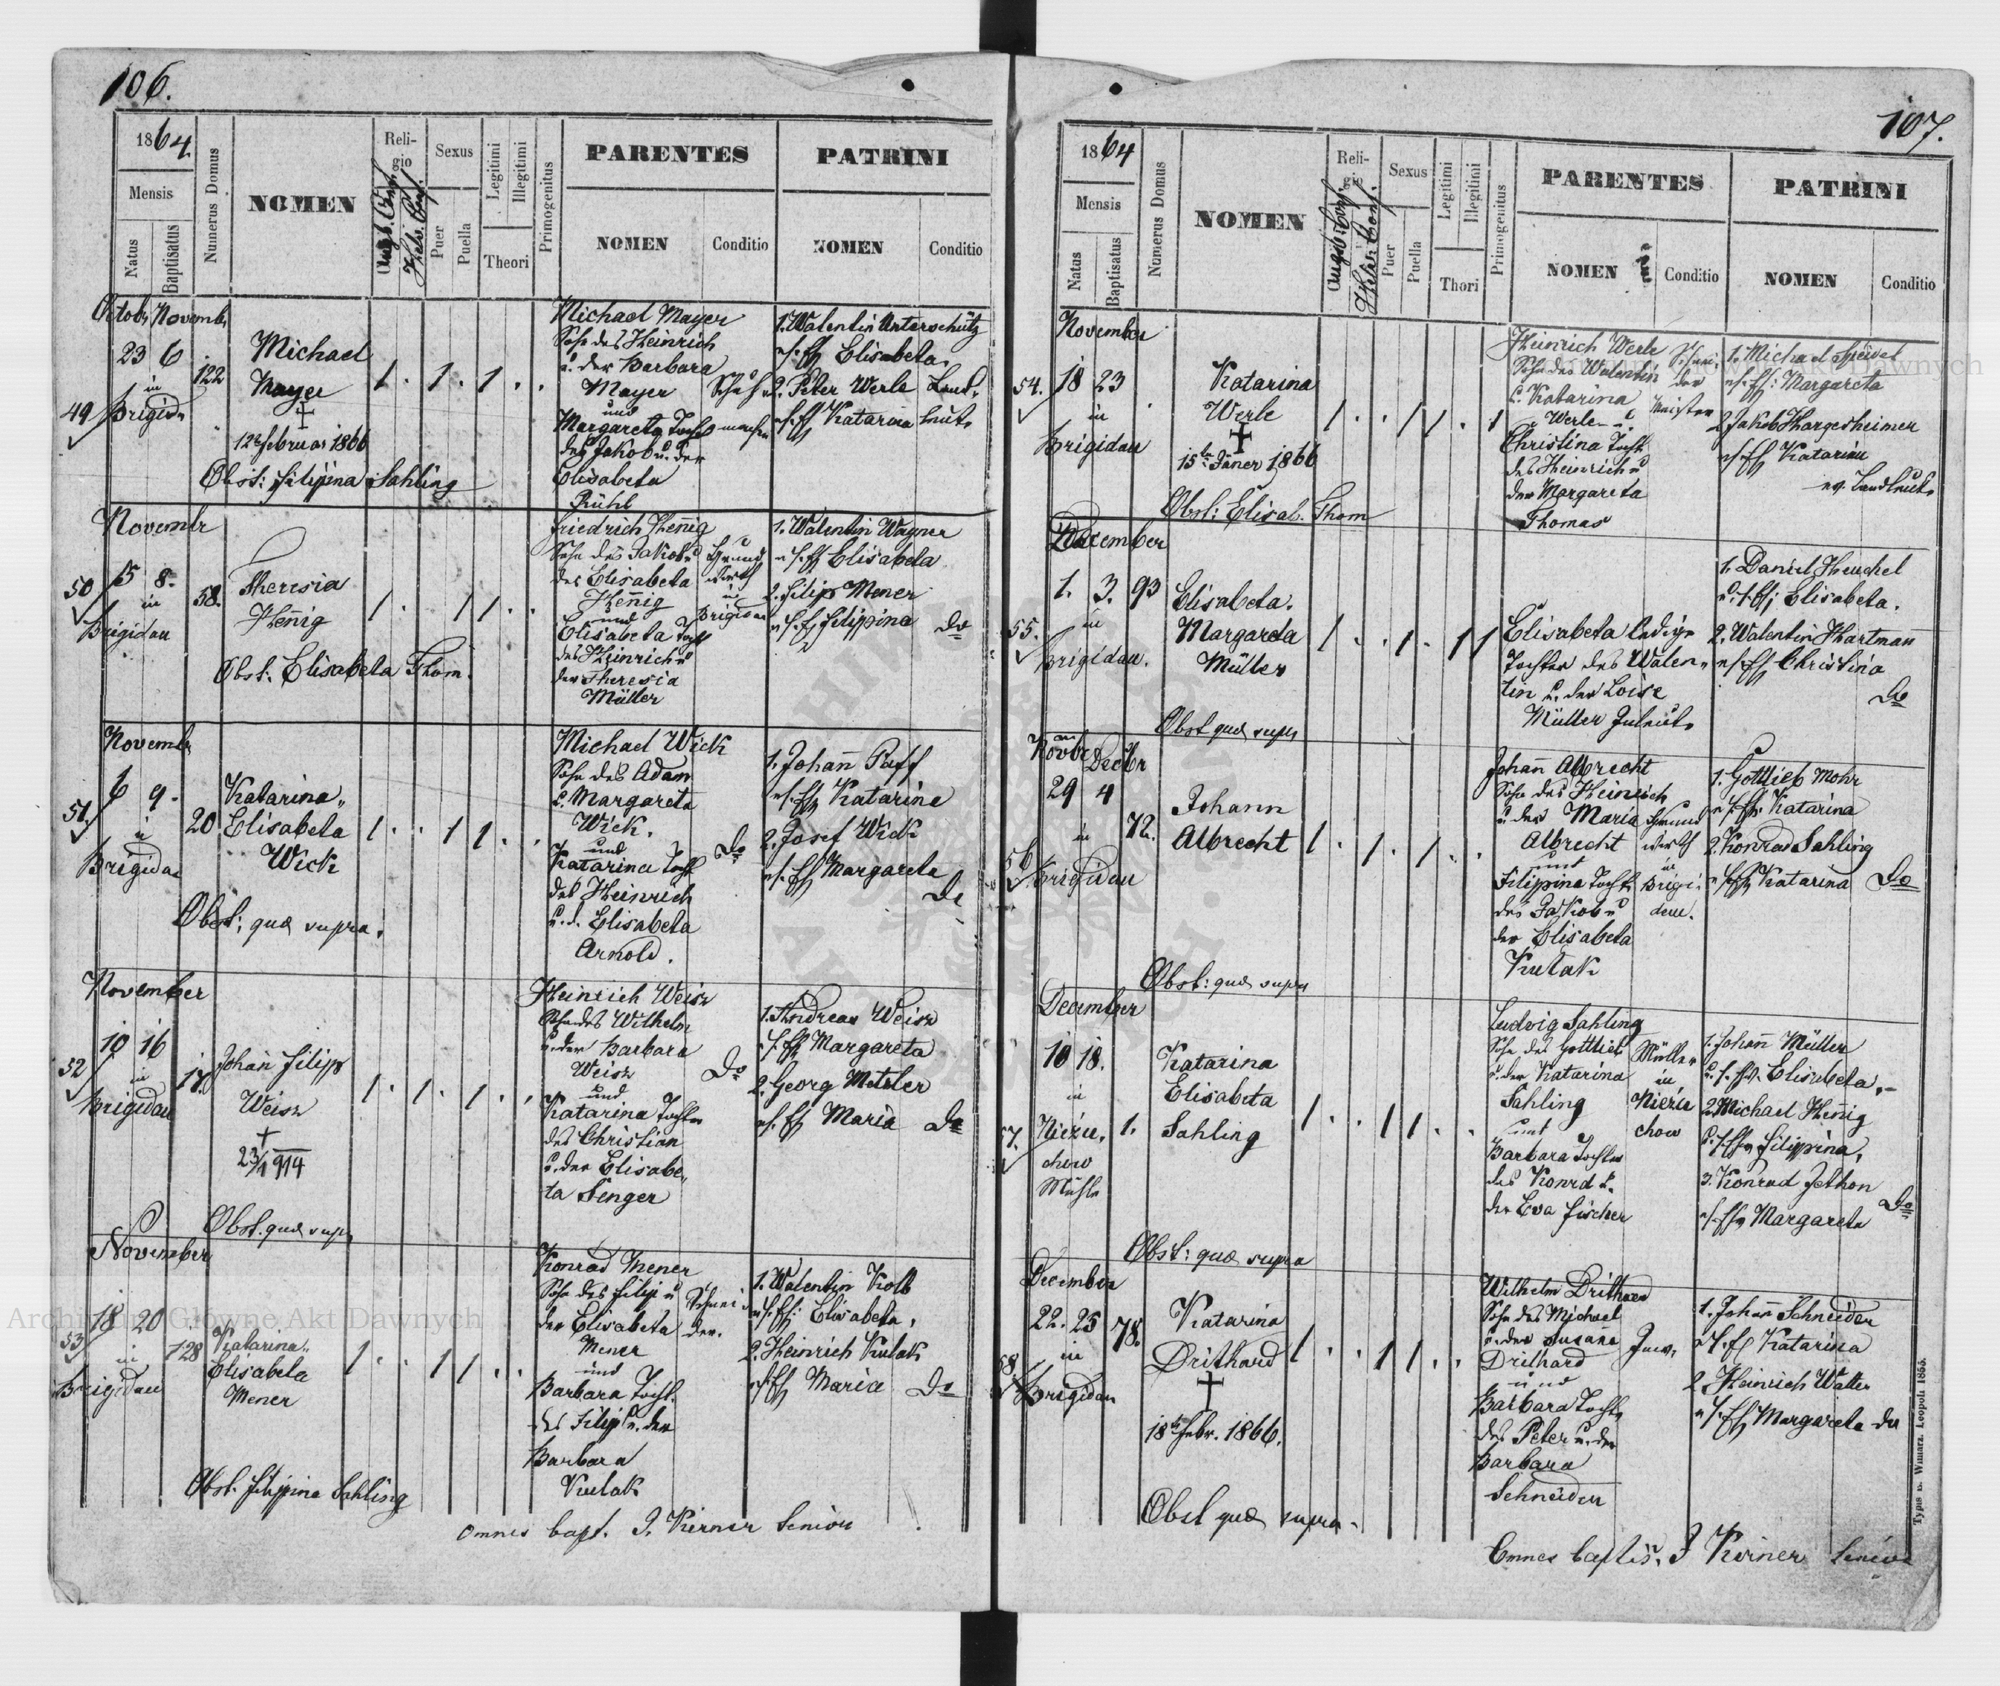 106.
1864.
Mensis
Natus
Baptisatus
Numerus Domus
NOMEN
Religio
Augb. Conf.
Helv. Conf.
Sexus
Puer
Puella
Legitimi
Illegitimi
Theori
Primogenitus
PARENTES
NOMEN
Conditio
PATRINI
NOMEN
Conditio
Octob. Novemb.
23 6
in
Brigidau
49
122
Michael
Mayer
12te Februar 1866
Obst: Filipina Sahling
1 . 1 . 1 . .
Michael Mayer
Sohn des Heinrich
u. der Barbara
Mayer
und
Margareta Tocht
des Jakob u. der
Elisabeta
Rühl
Schuh
macher
1. Walentin Unterschütz
u. s. Ehf Elisabeta
2. Peter Werle
u. s. Ehf Katarina
Landleute
Novembr
5 8.
in
Brigidau
50
58.
Theresia
Hen̄ig
Obst: Elisabeta Thom.
1 . . 1 1 . .
Friedrich Hen̄ig
Sohn des Jakob u
der Elisabeta
Hen̄ig
und
Elisabeta Tocht
des Heinrich u
der Theresia
Müller
Grund
wirth
in
Brigidau
1. Walentin Wagner
u. s. Ehf Elisabeta
2. Filip Mener
u. s. Ehf Filippina
Do
Novembr
6 9.
in
Brigidau
51.
20
Katarina
Elisabeta
Wick
Obst: quae supra.
1 . . 1 1 . .
Michael Wick
Sohn des Adam
u. Margareta
Wick.
und
Katarina Tocht
des Heinrich
u. d. Elisabeta
Arnold.
Do
1. Johan̄ Paff
u. s. Ehf Katarina
2. Josef Wick
u. s. Ehf Margareta
Do
November
10 16
in
Brigidau
52
17.
Johan̄ Filipp
Weisz
23/1 914
Obst. quae supra
1 . 1 . 1 . .
Heinrich Weisz
Sohn des Wilhelm
u. der Barbara
Weisz
und
Katarina Tochter
des Christian
u. der Elisabe-
ta Senger
Do
1. Andreas Weisz
u. s. Ehf Margareta
2. Georg Metzler
u. s. Ehf Maria
Do
November
18 20
in
Brigidau
53
128
Katarina
Elisabeta
Mener
Obst. Filippina Sahling
1 . . 1 1 . .
Konrad Mener
Sohn des Filip u
der Elisabeta
Mener
und
Barbara Tocht.
des Filip u. der
Barbara
Kulak
Schnei-
der.
1. Walentin Kolb
u. s. Ehf: Elisabeta,
2. Heinrich Kulak
u. s. Ehf Maria
Do
Omnes bapt. J. Kierner Senior
107.
1864
Mensis
Natus
Baptisatus
Numerus Domus
NOMEN
Religio
Augsb. Conf.
Helv. Conf.
Sexus
Puer
Puella
Legitimi
Illegitimi
Thori
Primogenitus
PARENTES
NOMEN
Conditio
PATRINI
NOMEN
Conditio
November
18 23
in
Brigidau
54.
Katarina
Werle
15te Jäner 1866
Obst: Elisab. Thom
Heinrich Werle
Sohn des Walentin
u. Katarina
Werle
Christina Tocht
des Heinrich u
der Margareta
Thomas
Schnei-
der
Meister
1. Michael
u. s. Ehf: Margareta
2 Jakob Hargesheimer
u. s. Ehf Katarina
Landleute
December
1. 3. 93
in
Brigidau.
55.
Elisabeta.
Margareta
Müller
Obst quae supra
1 . . 1 . 1 1
Elisabeta ledige
Tochter des Walen-
tin u. der Loise
Müller
1. Daniel Heuchel
u. s. Ehf Elisabeta.
2. Walentin Hartman̄
u. s. Ehf Christina
Do
Novbr Decbr
29 4
in
Brigidau
56
72.
Johann
Albrecht
Obst: quae supra
1 . 1 . 1 . .
Johan̄ Albrecht
Sohn des Heinrich
u. der Maria
Albrecht
und
Filippina Tocht
des Jakob u
der Elisabeta
Kulak
Grund
wirth
in
Brigi-
dau.
1. Gottlieb Mohr
u. s. Ehf Katarina
2. Konrad Sahling
u. s. Ehf Katarina
Do
December
10 18.
in
Nieżu-
chow
Mühle
57.
1.
Katarina
Elisabeta
Sahling
Obst: quae supra
1 . . 1 1 . .
Ludwig Sahling
Sohn des Gottlieb
u. der Katarina
Sahling
und
Barbara Tochter
des Konrd u.
der Eva Fischer
Müller
in
Nieżu
chow
1. Johan̄ Müller
u. s. Ehf. Elisabeta.
2. Michael Hen̄ig
u. s. Ehf Filippina,
3. Konrad Jethon
u. s. Ehf Margareta
Do
December
22. 25
in
Brigidau
58.
78.
Katarina
Drithard
18te Febr. 1866.
Obst quae supra.
1 . . 1 1 . .
Wilhelm Drithard
Sohn des Michael
u. der Susana
Drithard
und
Barbara Tocht
des Peter u. der
Barbara
Schneider
1. Johan̄ Schneider
u. s. Ehf Katarina
2. Heinrich Walter
u. s. Ehf Margareta Do
Omnes baptis. J Kierner Senior
Typis v. Winiarz. Leopoli 1855.
Archiwum Główne Akt Dawnych
Archiwum Główne Akt Dawnych